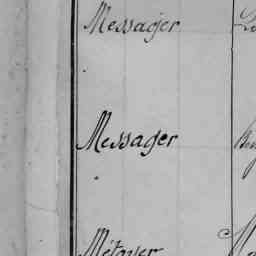 Messager
Messager
Métayer